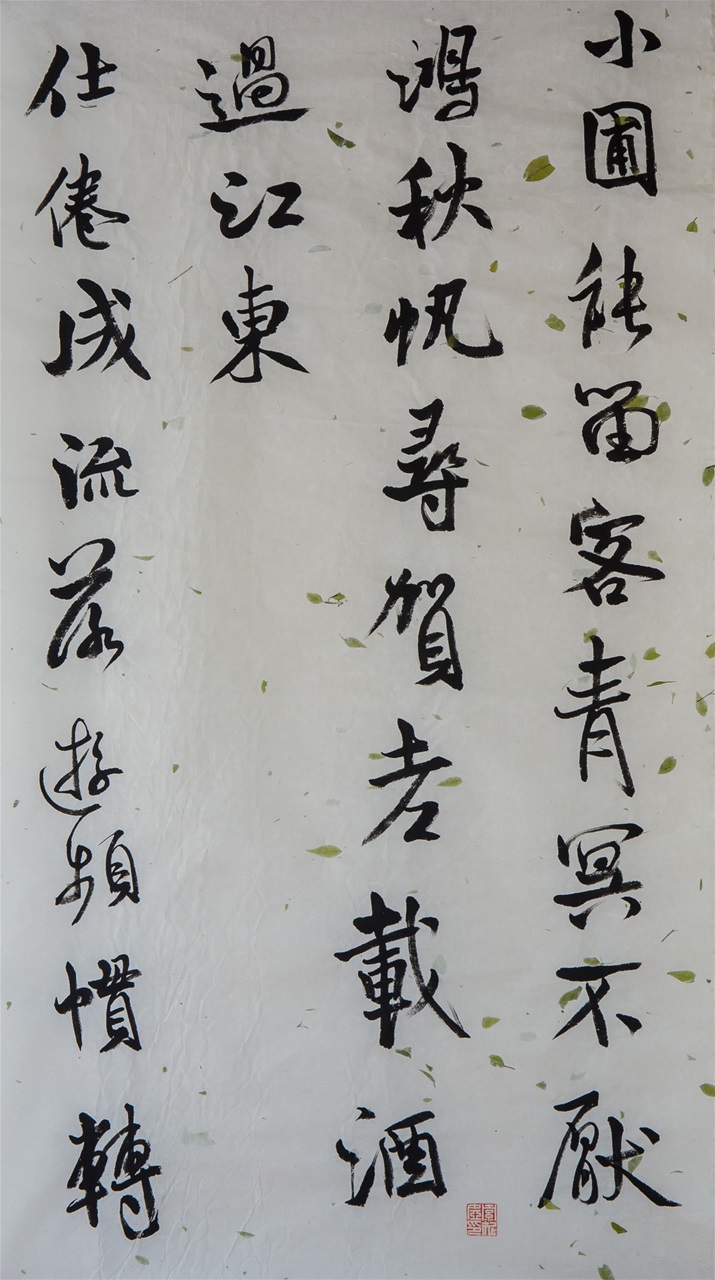 小圃能留客青冥不厭
鴻秋帆尋賀老載酒
過江東
仕倦成流落遊頻慣轉